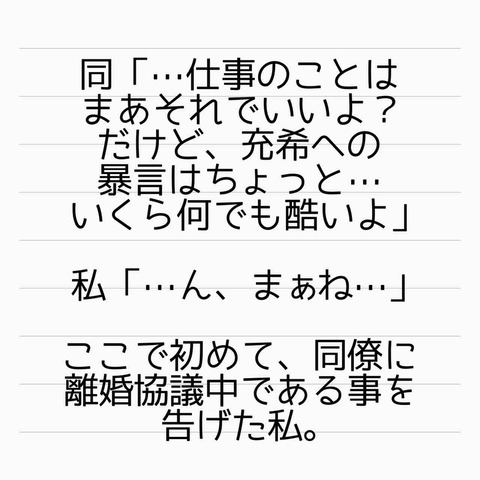 同「…仕事のことは
まあそれでいいよ？
だけど、充希への
暴言はちょっと…
いくら何でも酷いよ」
私「…ん、まぁね…」
ここで初めて、同僚に
離婚協議中である事を
告げた私。